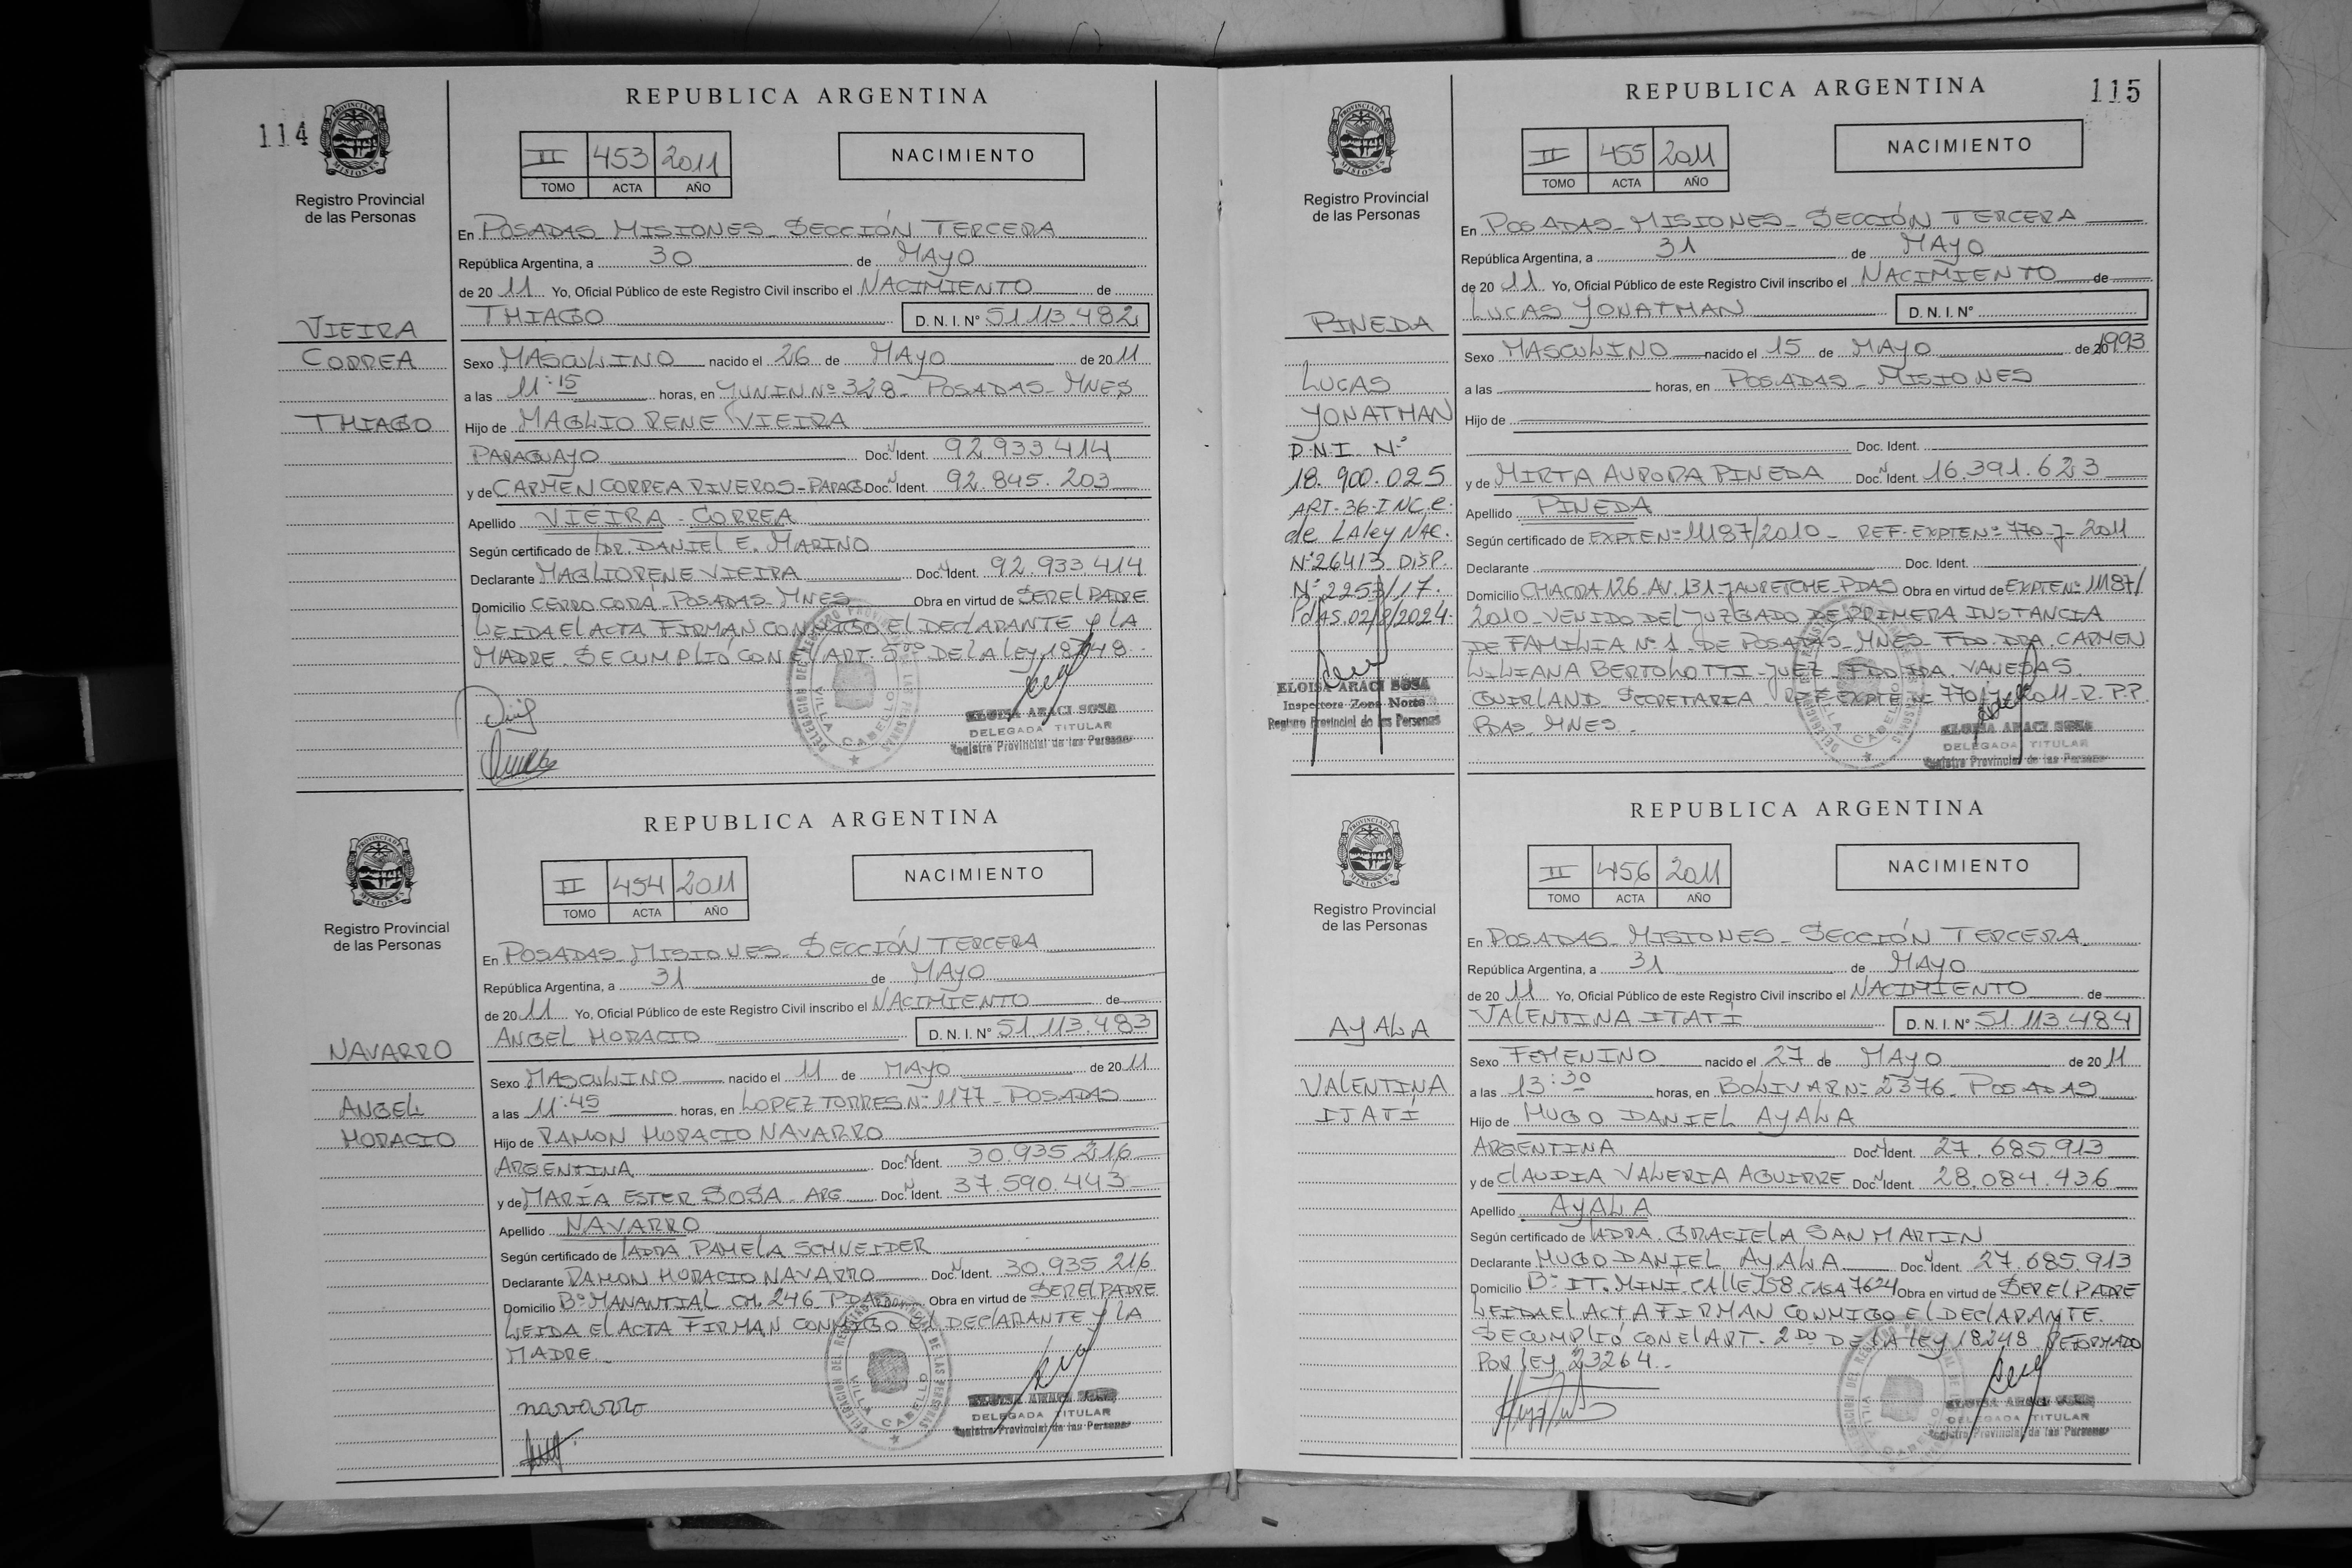 114
PROVINCIA DE
MISIONES
Registro Provincial
de las Personas
VIEIRA
CORREA
THIAGO
REPUBLICA ARGENTINA
II 453 2011
TOMO ACTA AÑO
NACIMIENTO
En POSADAS-MISIONES-SECCIÓN TERCERA
República Argentina, a 30 de MAYO
de 2011 Yo, Oficial Público de este Registro Civil inscribo el NACIMIENTO de
THIAGO D.N.I.Nº 51.113.482
Sexo MASCULINO nacido el 26 de MAYO de 2011
a las 11:15 horas, en JUNIN Nº 328- POSADAS-MNES
Hijo de MAGLIO RENE VIEIRA
PARAGUAYO Doc. Ident. 92.933.414
y de CARMEN CORREA RIVEROS-PARAG Doc. Ident. 92.845.203
Apellido VIEIRA - CORREA
Según certificado de DR. DANIEL E. MARINO
Declarante MAGLIO RENE VIEIRA Doc. Ident. 92.933.414
Domicilio CERRO CORÁ-POSADAS-MNES Obra en virtud de SER EL PADRE
LEIDA EL ACTA FIRMAN CONMIGO EL DECLARANTE Y LA
MADRE. SE CUMPLIÓ CON EL ART. 5to DE LA LEY 18248.
DELEGACION DEL REGISTRO PROVINCIAL DE LAS PERSONAS
VILLA CABELLO
ELOISA ARACI SOSA
DELEGADA TITULAR
Registro Provincial de las Personas
PROVINCIA DE
MISIONES
Registro Provincial
de las Personas
NAVARRO
ANGEL
HORACIO
REPUBLICA ARGENTINA
II 454 2011
TOMO ACTA AÑO
NACIMIENTO
En POSADAS-MISIONES-SECCIÓN TERCERA
República Argentina, a 31 de MAYO
de 2011 Yo, Oficial Público de este Registro Civil inscribo el NACIMIENTO de
ANGEL HORACIO D.N.I.Nº 51.113.483
Sexo MASCULINO nacido el 11 de MAYO de 2011
a las 11:45 horas, en LOPEZ TORRES Nº 1177-POSADAS
Hijo de RAMON HORACIO NAVARRO
ARGENTINA Doc. Ident. 30.935.216
y de MARÍA ESTER SOSA - ARG Doc. Ident. 37.590.443
Apellido NAVARRO
Según certificado de LA DRA. PAMELA SCHNEIDER
Declarante RAMON HORACIO NAVARRO Doc. Ident. 30.935.216
Domicilio Bº MANANTIAL CH. 246 PDAS Obra en virtud de SER EL PADRE
LEIDA EL ACTA FIRMAN CONMIGO EL DECLARANTE Y LA
MADRE.
navarro
DELEGACION DEL REGISTRO PROVINCIAL DE LAS PERSONAS
VILLA CABELLO
ELOISA ARACI SOSA
DELEGADA TITULAR
Registro Provincial de las Personas
115
PROVINCIA DE
MISIONES
Registro Provincial
de las Personas
PINEDA
LUCAS
YONATHAN
D.N.I. Nº
18.900.025
ART-36-INC.c.
de LA ley NAC.
Nº 26413 DISP.
Nº 2253/17.
PdAS.02/8/2024.
ELOISA ARACI SOSA
Inspectora Zona Norte
Registro Provincial de las Personas
REPUBLICA ARGENTINA
II 455 2011
TOMO ACTA AÑO
NACIMIENTO
En POSADAS-MISIONES-SECCIÓN TERCERA
República Argentina, a 31 de MAYO
de 2011 Yo, Oficial Público de este Registro Civil inscribo el NACIMIENTO de
LUCAS YONATHAN D.N.I.Nº
Sexo MASCULINO nacido el 15 de MAYO de 20 1993
a las horas, en POSADAS-MISIONES
Hijo de
Doc. Ident.
y de MIRTA AURORA PINEDA Doc. Ident. 16.391.623
Apellido PINEDA
Según certificado de EXPTE Nº 11187/2010 - REF. EXPTE Nº 770-J-2011
Declarante Doc. Ident.
Domicilio CHACRA 126 AV. 131-JAURETCHE-PDAS Obra en virtud de EXPTE Nº 11187/
2010-VENIDO DEL JUZGADO DE PRIMERA INSTANCIA
DE FAMILIA Nº 1 DE POSADAS-MNES-FDO DRA. CARMEN
LILIANA BERTOLOTTI-JUEZ-FDO DRA. VANESA S.
GUIRLAND SECRETARIA REF EXPTE Nº 770-J-2011-R.P.P.
PDAS-MNES.
DELEGACION DEL REGISTRO PROVINCIAL DE LAS PERSONAS
VILLA CABELLO
ELOISA ARACI SOSA
DELEGADA TITULAR
Registro Provincial de las Personas
PROVINCIA DE
MISIONES
Registro Provincial
de las Personas
AYALA
VALENTINA
ITATÍ
REPUBLICA ARGENTINA
II 456 2011
TOMO ACTA AÑO
NACIMIENTO
En POSADAS-MISIONES-SECCIÓN TERCERA
República Argentina, a 31 de MAYO
de 2011 Yo, Oficial Público de este Registro Civil inscribo el NACIMIENTO de
VALENTINA ITATÍ D.N.I.Nº 51.113.484
Sexo FEMENINO nacido el 27 de MAYO de 2011
a las 13:30 horas, en BOLIVAR Nº 2376-POSADAS
Hijo de HUGO DANIEL AYALA
ARGENTINA Doc. Ident. 27.685.913
y de CLAUDIA VALERIA AGUIRRE Doc. Ident. 28.084.436
Apellido AYALA
Según certificado de LA DRA. GRACIELA SAN MARTIN
Declarante HUGO DANIEL AYALA Doc. Ident. 27.685.913
Domicilio Bº IT. MINI. CALLE 158 CASA 7624 Obra en virtud de SER EL PADRE
LEIDA EL ACTA FIRMAN CONMIGO EL DECLARANTE.
SE CUMPLIÓ CON EL ART. 2DO DE LA LEY 18248 REFORMADO
POR LEY 23264.-
DELEGACION DEL REGISTRO PROVINCIAL DE LAS PERSONAS
VILLA CABELLO
ELOISA ARACI SOSA
DELEGADA TITULAR
Registro Provincial de las Personas